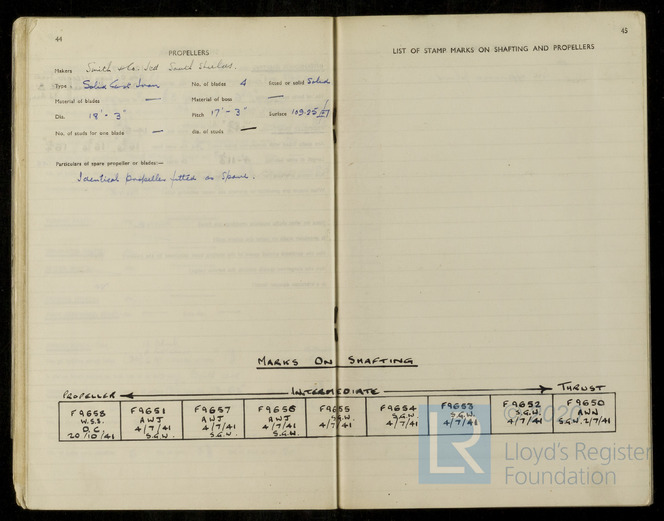 44
PROPELLERS
Makers Smith & Co. Ltd South Shields.
Type Solid Cast Iron No. of blades 4 fitted or solid Solid
Material of blades — Material of boss —
Dia. 18' - 3" Pitch 17' - 3" Surface 109.55
No. of studs for one blade — dia. of studs —
Particulars of spare propeller or blades:—
Identical propeller fitted as Spare.
45
LIST OF STAMP MARKS ON SHAFTING AND PROPELLERS
MARKS ON SHAFTING
PROPELLER INTERMEDIATE THRUST
F9658 F9651 F9657 F9656 F9655 F9654 F9653 F9652 F9650
W.S.S. AWJ AWJ AWJ S.G.W. S.G.W. S.G.W. S.G.W. AWN
D.C. 4/7/41 4/7/41 4/7/41 4/7/41 4/7/41 4/7/41 4/7/41 S.G.W. 2/7/41
20/10/41 S.G.W. S.G.W. S.G.W.
LR
© 2020
Lloyd's Register
Foundation